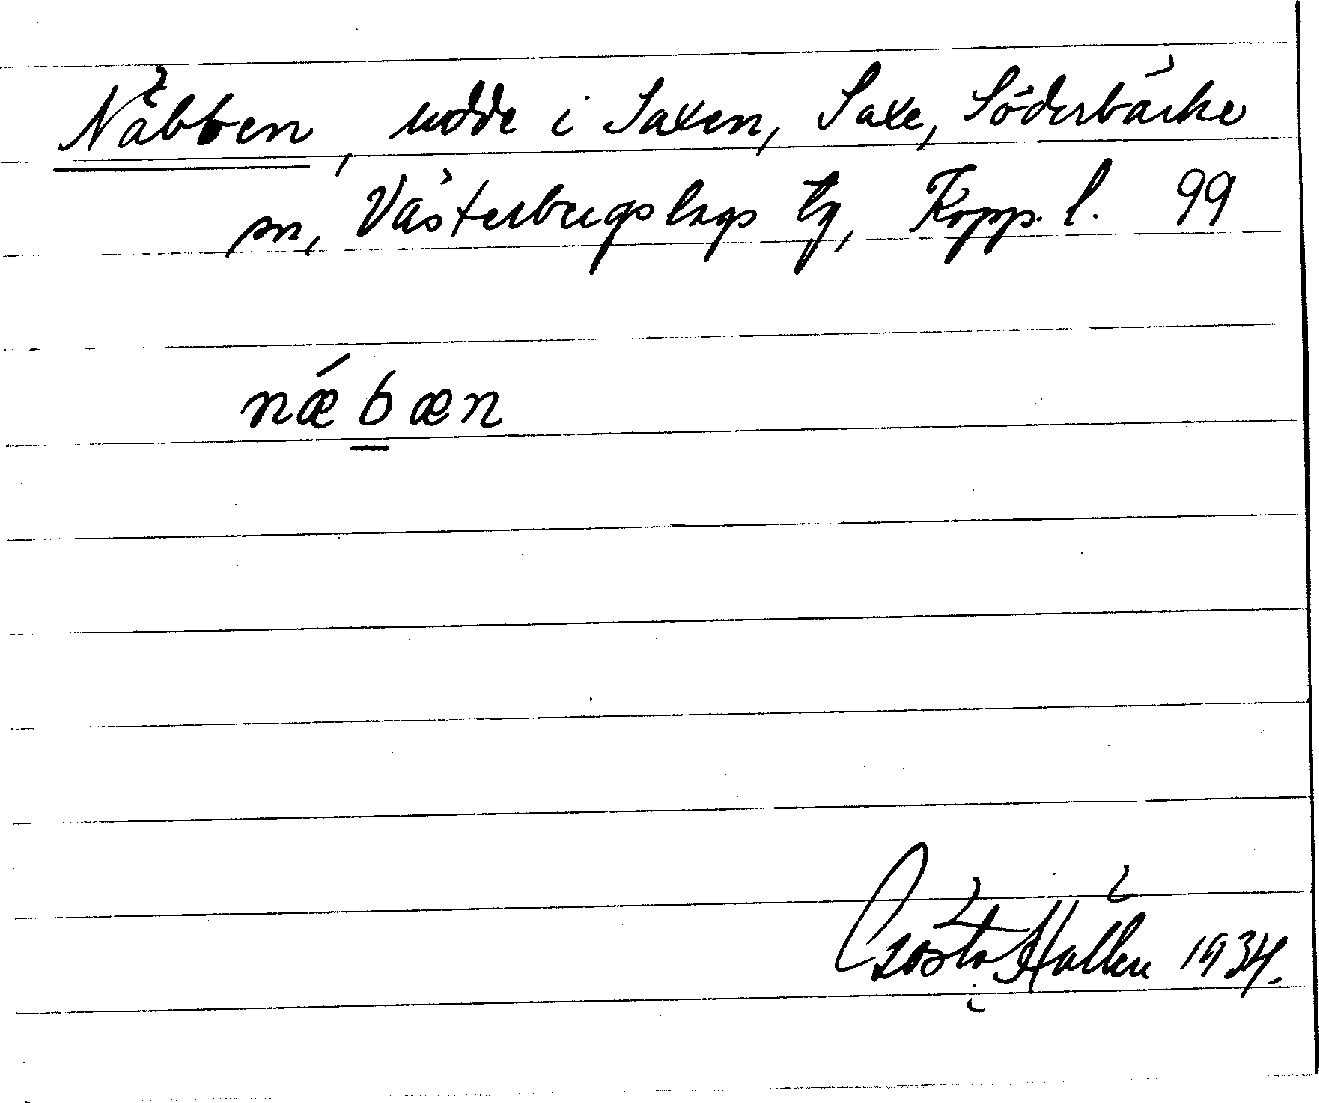 Näbben, udde i Saxen, Saxe, Söderbärke
sn, Västerbergslags tg, Kopp. l. 99
nǽbæn
Gösta Hallén 1934.